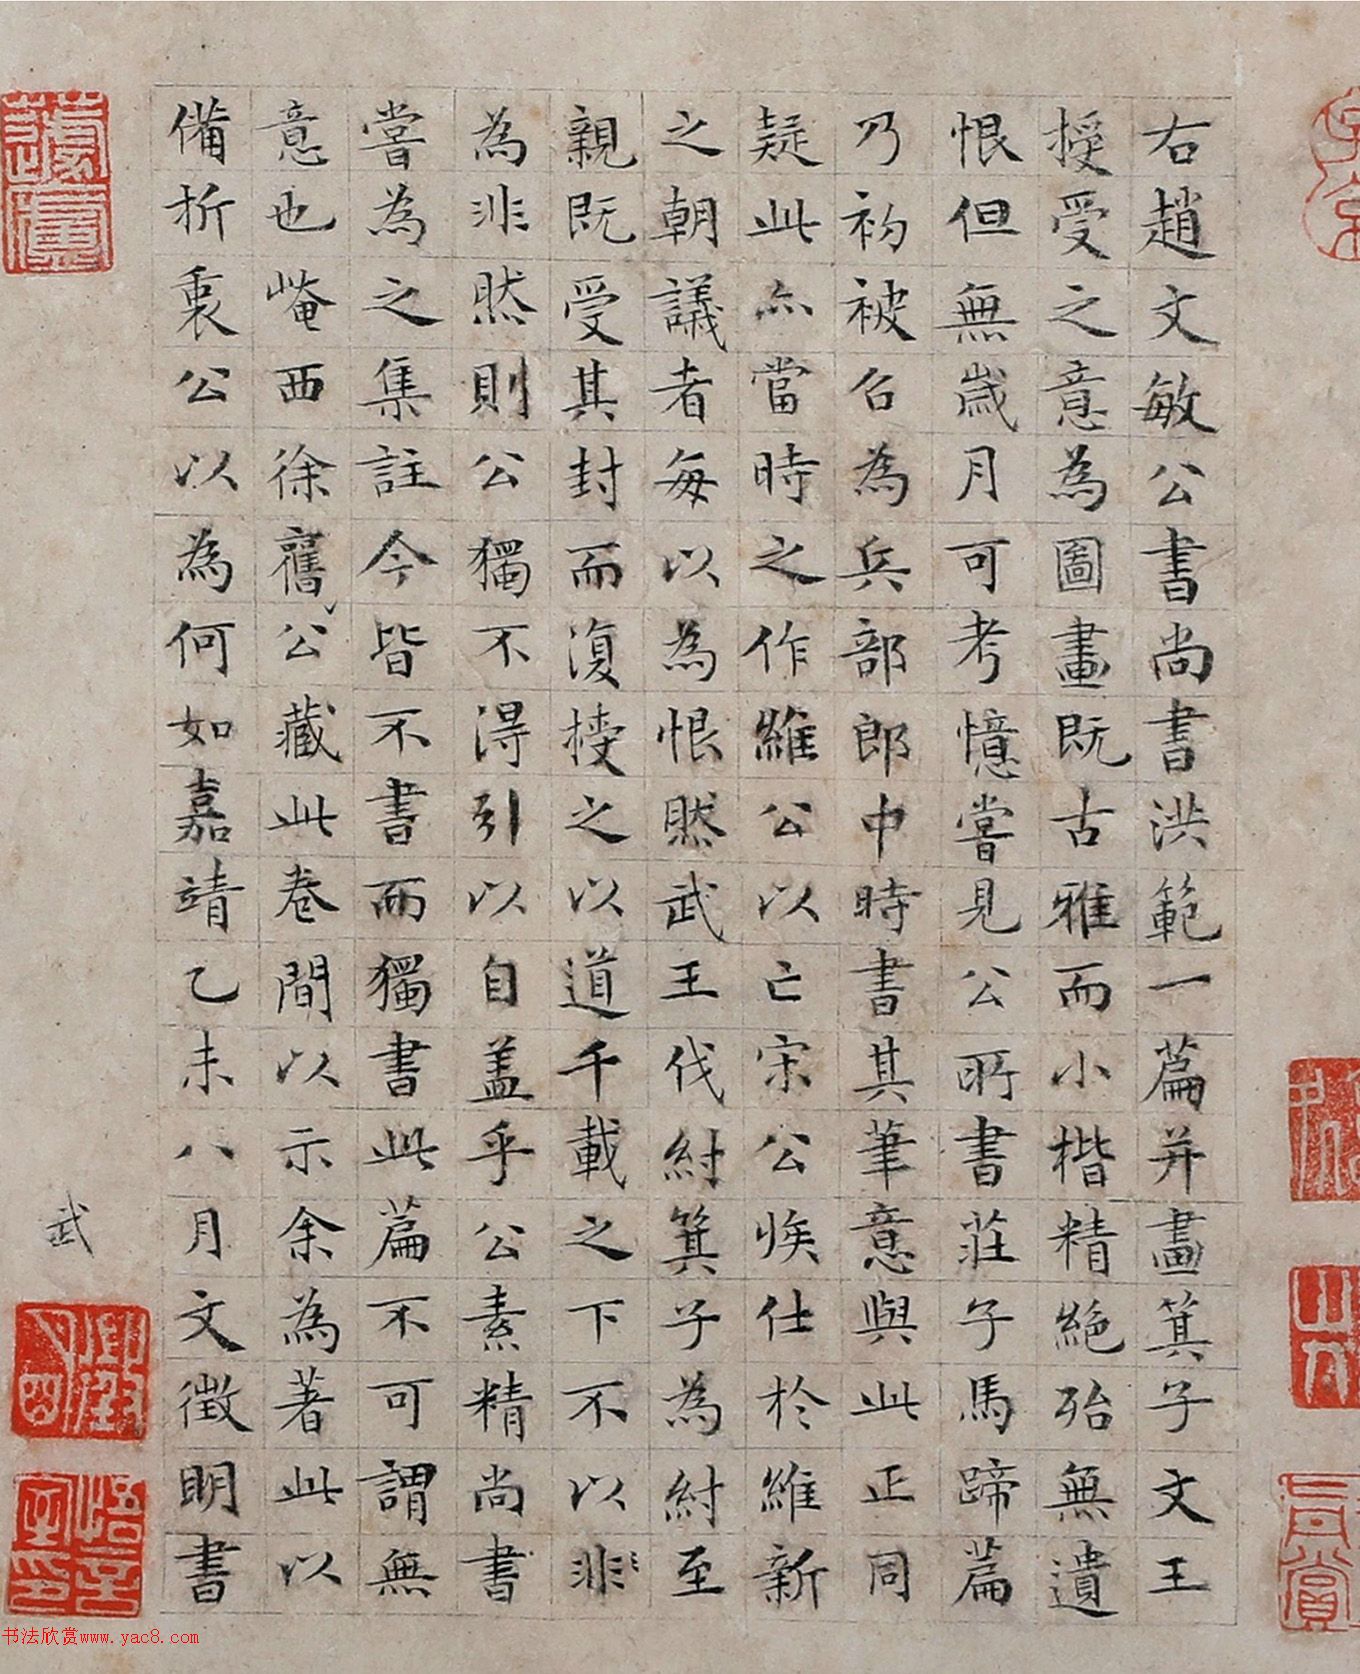 右趙文敏公書尚書洪範一篇并畫箕子文王
授受之意為圖畫既古雅而小楷精絕殆無遺
恨但無歲月可考憶嘗見公所書莊子馬蹄篇
乃初被召為兵部郎中時書其筆意與此正同
疑此亦當時之作維公以亡宋公族仕於維新
之朝議者每以為恨然武王伐紂箕子為紂至
親既受其封而復授之以道千載之下不以非
為非然則公獨不得引以自盖乎公素精尚書
嘗為之集註今皆不書而獨書此篇不可謂無
意也崦西徐舊公藏此卷間以示余為著此以
備折衷公以為何如嘉靖乙未八月文徵明書
武
书法欣赏www.yac8.com